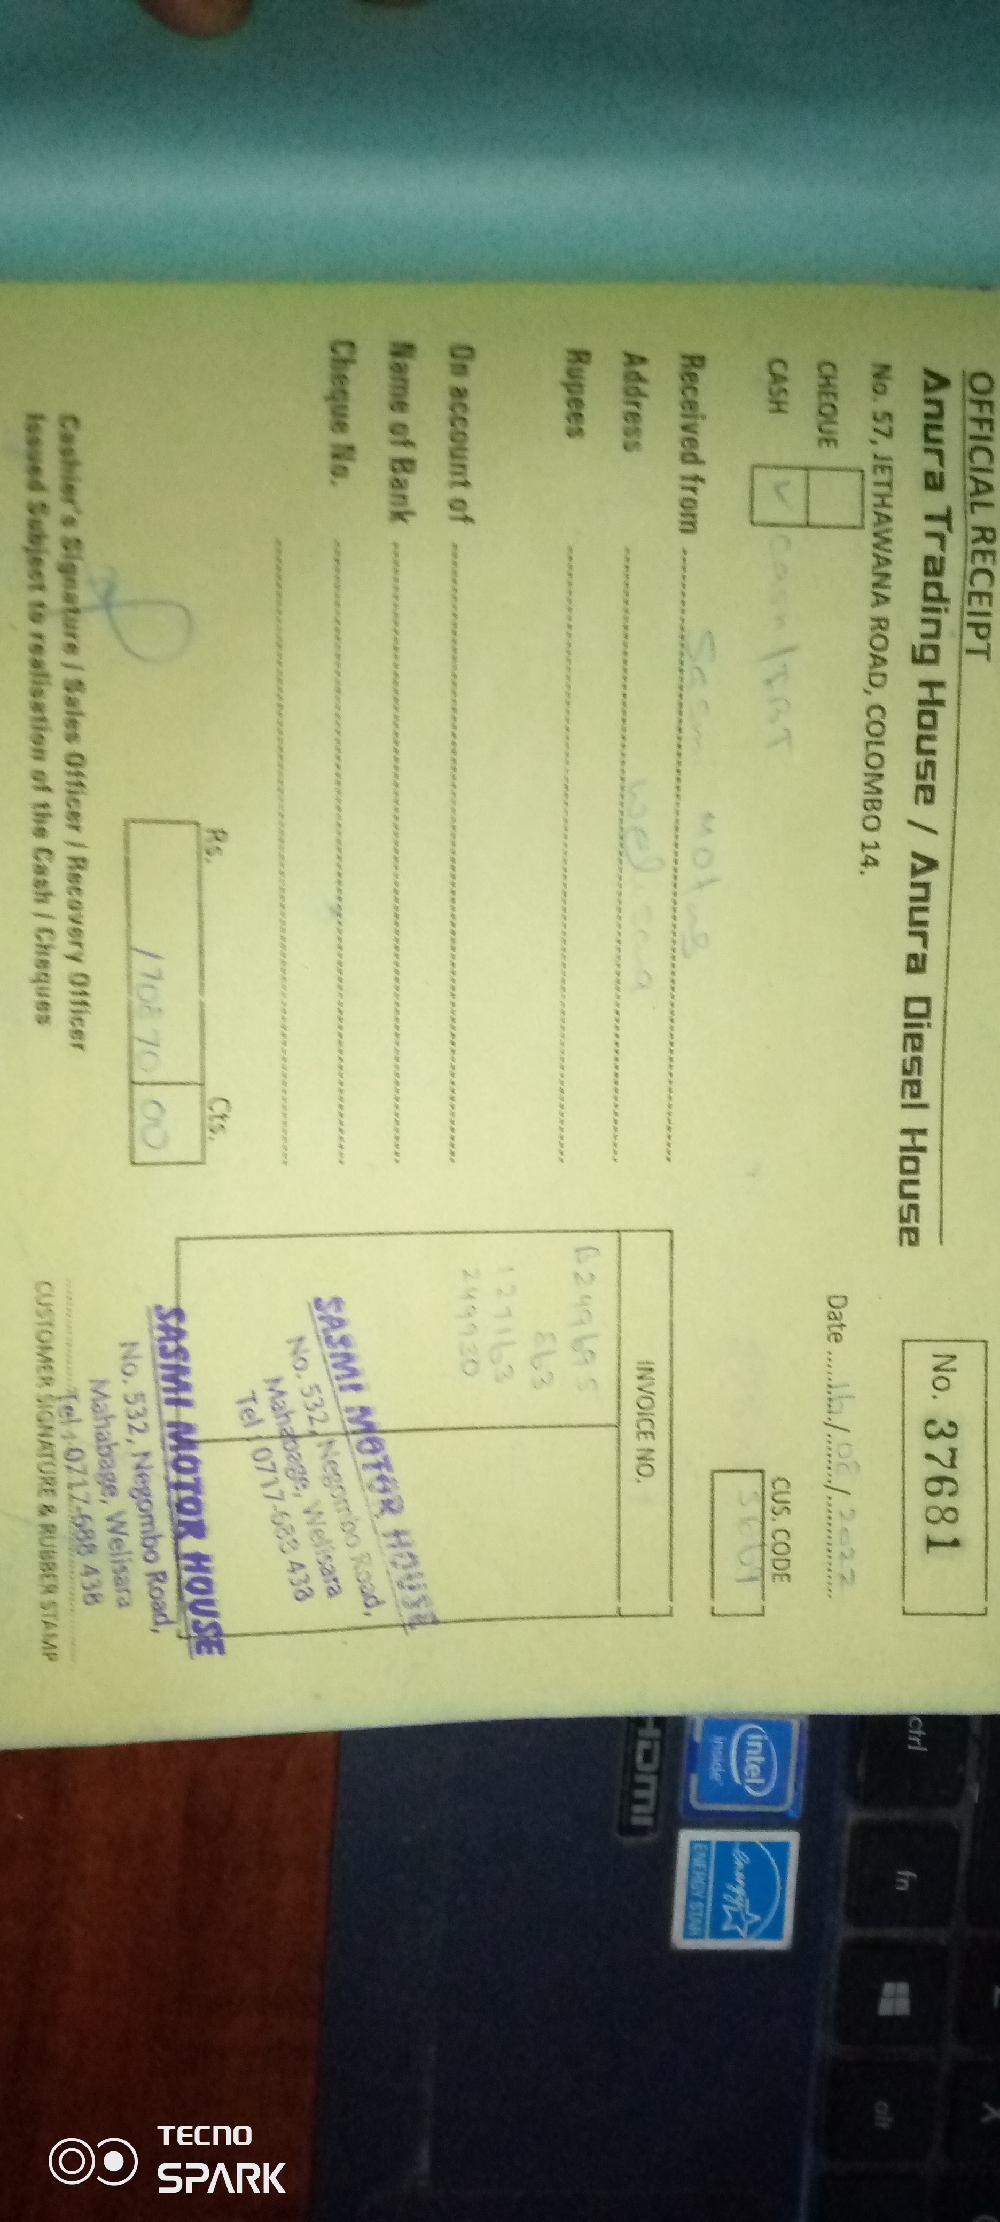 OFFICIAL RECEIPT
Anura Trading House / Anura Diesel House
No. 57, JETHAWANA ROAD, COLOMBO 14.
No. 37681
Date 16/08/2022
CHEQUE
CASH Cash / TBT
CUS. CODE
Received from Sasmi Motors
Address Welisara
Rupees
On account of
Name of Bank
Cheque No.
INVOICE NO.
B249695
563
127163
249930
SASMI MOTOR HOUSE
No. 532, Negombo Road,
Mahabage, Welisara
Tel : 0717-688 438
Rs. Cts.
170870 00
SASMI MOTOR HOUSE
No. 532, Negombo Road,
Mahabage, Welisara
Tel : 0717-688 438
Cashier's Signature / Sales Officer / Recovery Officer
Issued Subject to realisation of the Cash / Cheques
CUSTOMER SIGNATURE & RUBBER STAMP
HDMI
intel
inside
energy
ENERGY STAR
ctrl
fn
alt
TECNO
SPARK